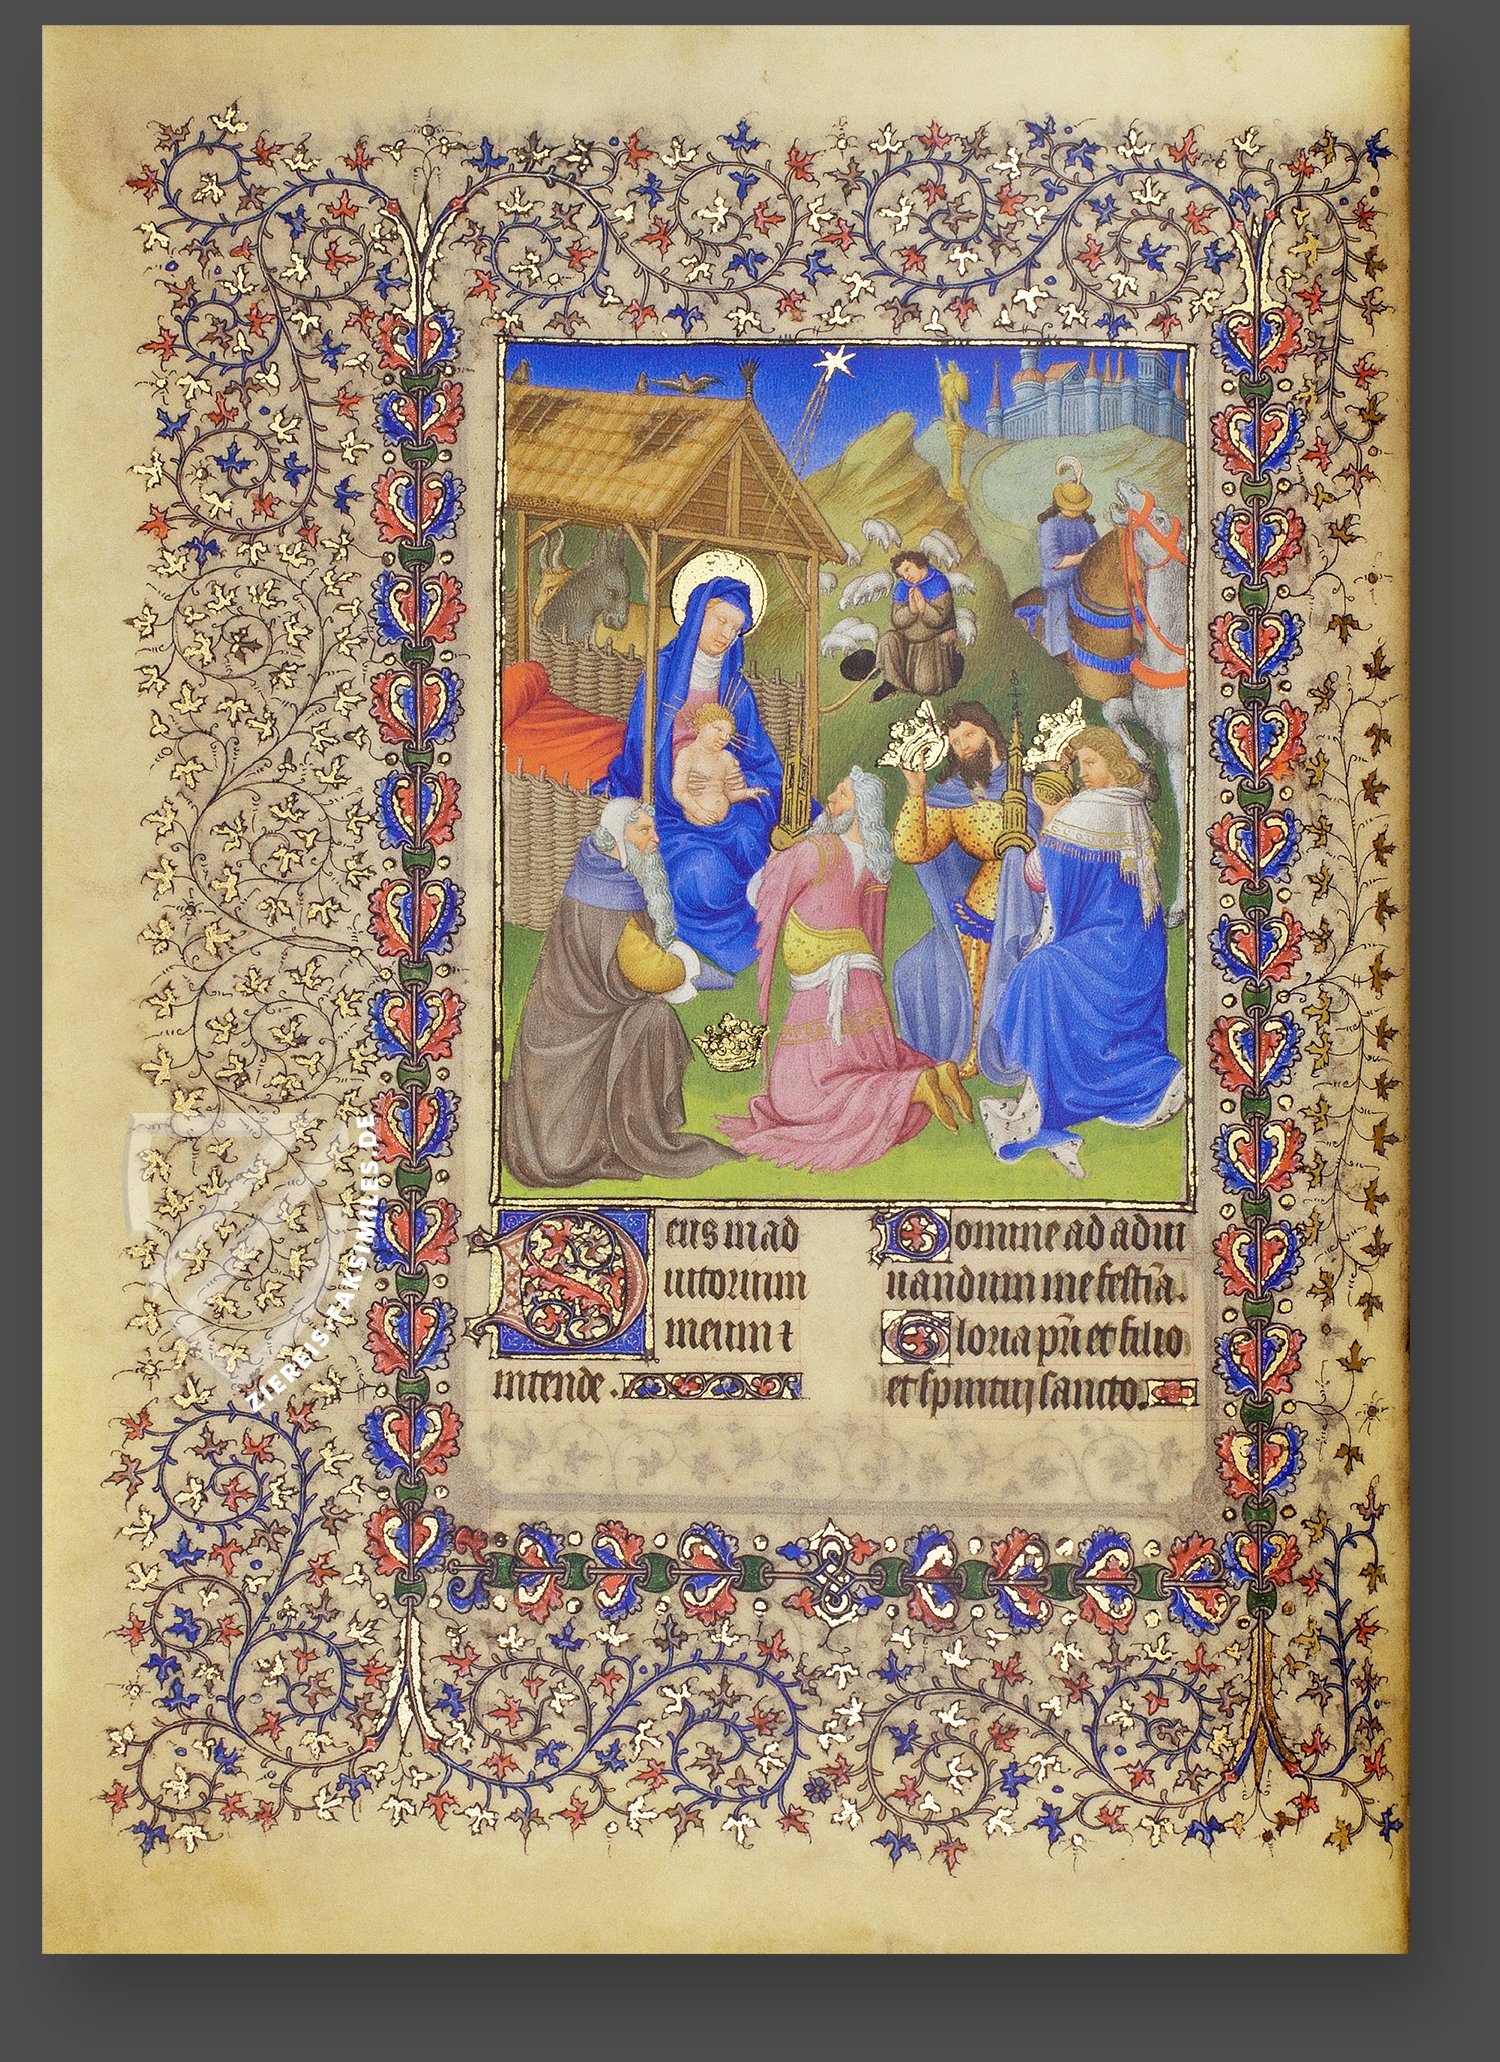 Deus in ad
iutorium
meum ⁊
intende.
Domine ad adiu
uandum me festĩa.
Gloria pr̃i et filio
et spiritui sancto.
ZIEREIS-FAKSIMILES.DE